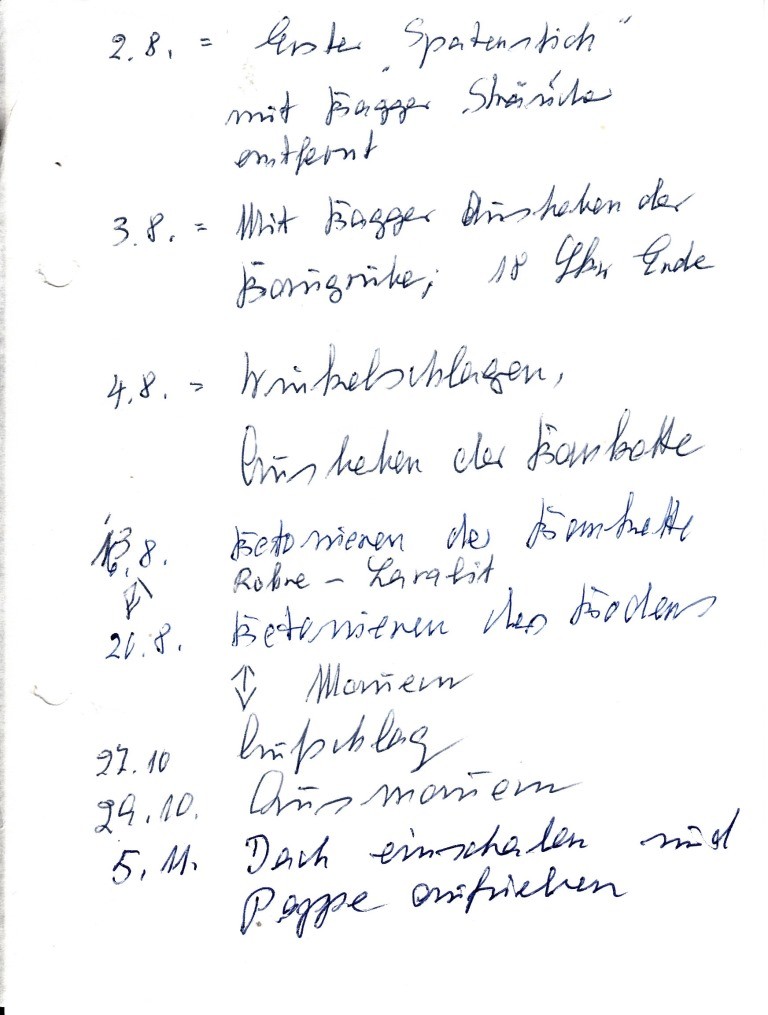 2.8. = Erster „Spatenstich"
mit Bagger Sträucher
entfernt
3.8. = Mit Bagger Ausheben der
Baugrube; 18 Uhr Ende
4.8. = Winkelschlagen,
Ausheben der Bankette
8. Betonieren der Bankette
Rohre –
20.8. Betonieren des Bodens
↕ Mauern
27.10 Aufschlag
29.10. Ausmauern
5.11. Dach einschalen und
Pappe aufziehen